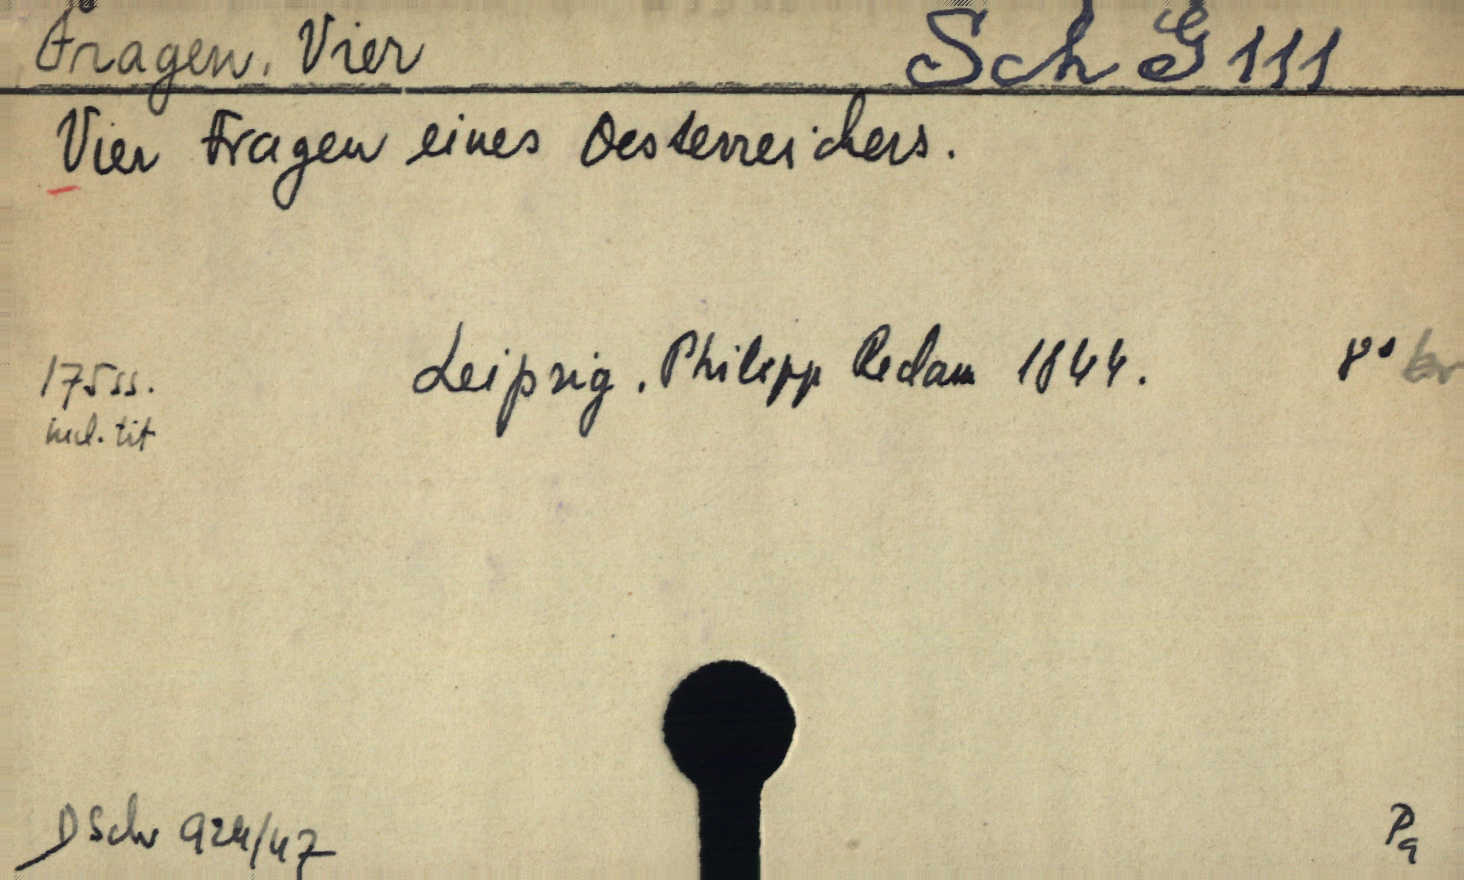 Fragen, Vier Sch G 111
Vier Fragen eines Oesterreichers.
175 ss. Leipzig. Philipp Reclam 1844. 8° br
incl. tit
DSchr 924/47 Pa